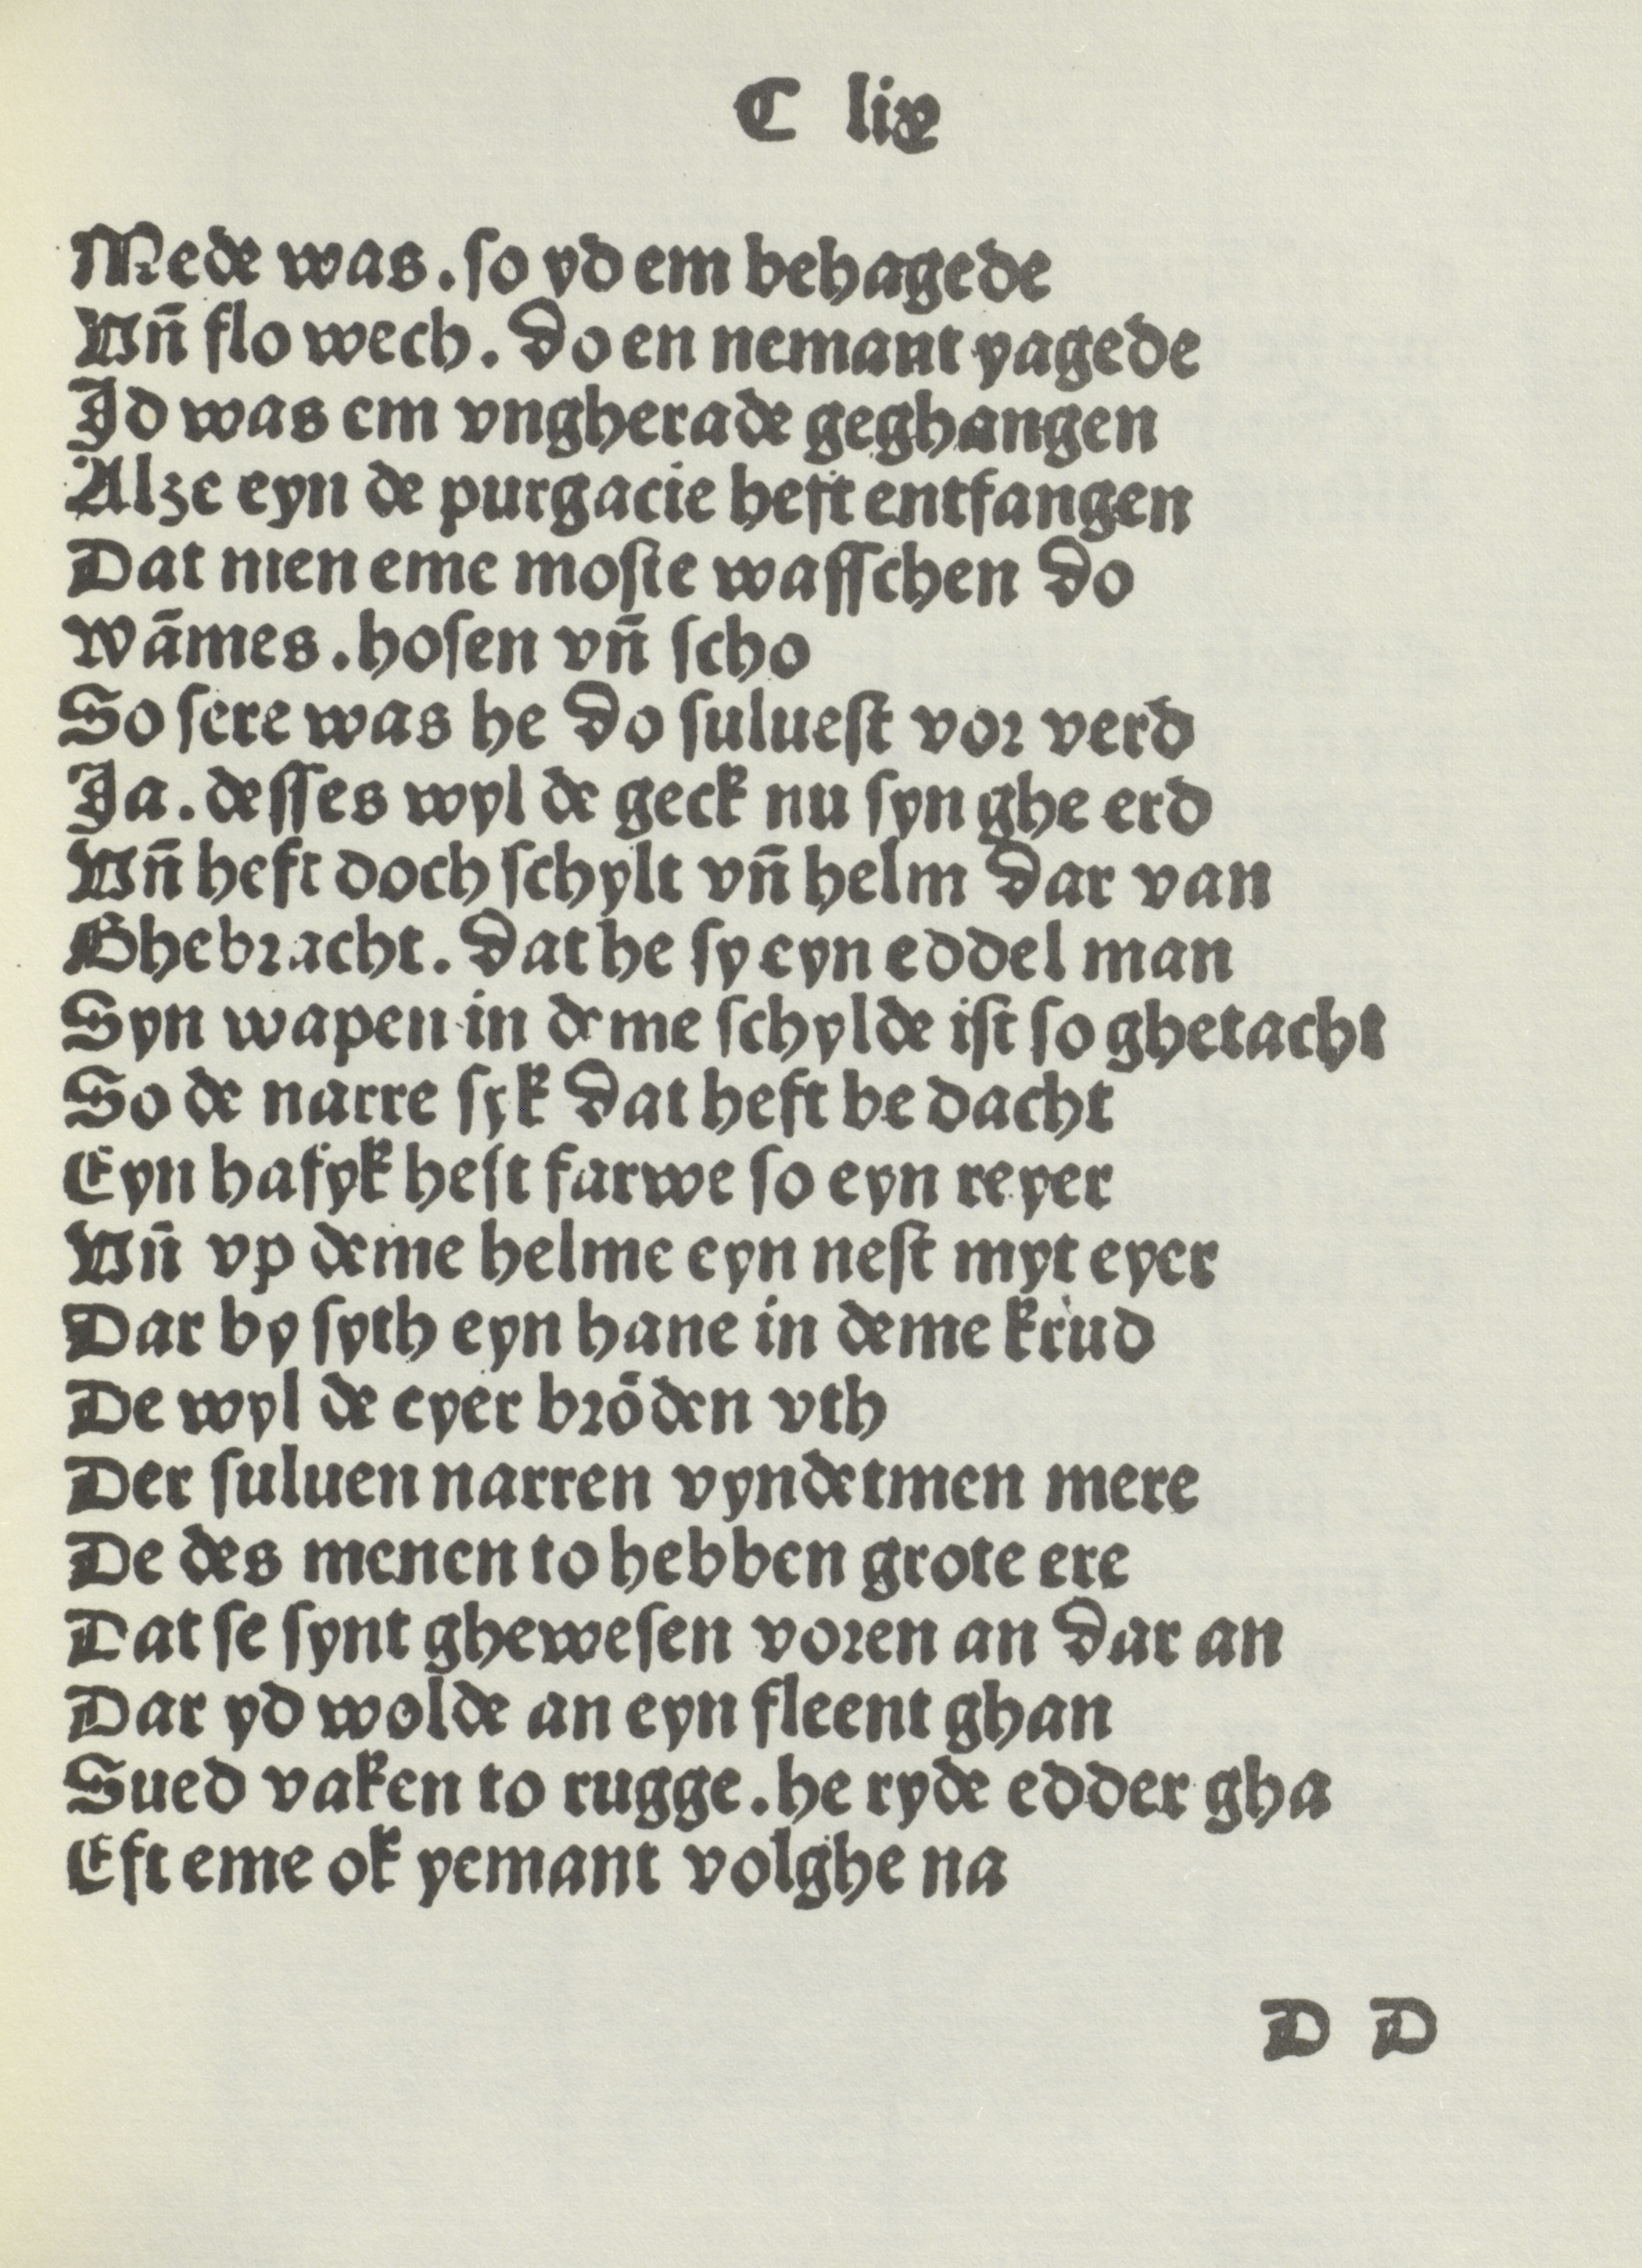 C lix
Mede was. so yd em behagede
Vñ flo wech. Do en nemant yagede
Id was em vngherade geghangen
Alze eyn de purgacie heft entfangen
Dat men eme moste wasschen do
Wāmes. hosen vñ scho
So sere was he do suluest vor verd
Ja. desses wyl de geck nu syn ghe erd
Vñ heft doch schylt vñ helm dar van
Ghebracht. dat he sy eyn eddel man
Syn wapen in deme schylde ist so ghetacht
So de narre syk dat heft be dacht
Eyn hafyk heft farwe so eyn reyer
Vñ vp deme helme eyn nest myt eyer
Dar by syth eyn hane in deme krud
De wyl de eyer bröden vth
Der suluen narren vyndetmen mere
De des menen to hebben grote ere
Dat se synt ghewesen voren an dar an
Dar yd wolde an eyn fleent ghan
Sued vaken to rugge. he ryde edder gha
Eft eme ok yemant volghe na
D D